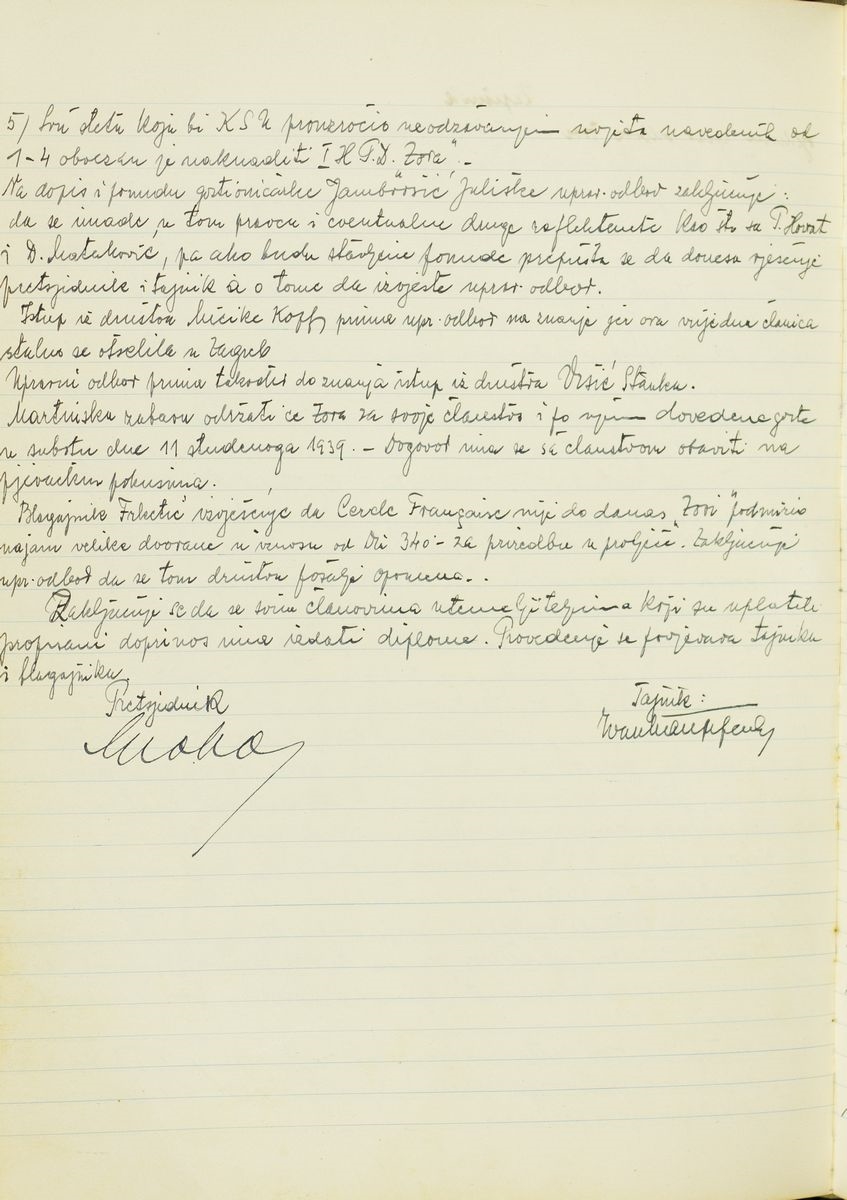 5) Svu štetu koju bi KSU prouzročio neodržavanjem uvjeta navedenih od
1-4 obvezan je naknaditi I H.P.D. Zora". -
Na dopis i ponudu gostioničarke Jambrošić Juliške uprav. odbor zaključuje:
da se imade u tom pravcu i eventualne druge reflektente kao što su P. Horvat
i D. Mataković, pa ako budu stavljene ponude prepušta se da donesu rješenje
pretsjednik i tajnik a o tome da izvjeste uprav. odbor.
Istup iz društva Micike Koff prima upr. odbor na znanje jer ova vrijedna članica
stalno se otselila u Zagreb
Upravni odbor prima također do znanja istup iz društva Vršić Stanka.
Martinsku zabavu održati će Zora za svoje članstvo i po njem dovedene goste
u subotu dne 11 studenoga 1939. - Dogovor ima se sa članstvom obaviti na
pjevačkim pokusima.
Blagajnik Frketić izvješćuje da Cercle Française nije do danas „Zori" podmirio
najam velike dvorane u iznosu od Din 340.- za priredbu u proljeće. Zaključuje
upr. odbor da se tom društvu pošalje opomena. -
Zaključuje se da se svim članovima utemeljiteljima koji su uplatili
propisani doprinos ima izdati diplome. Provedenje se povjerava tajniku
i blagajniku.
Pretsjednik
Tajnik: